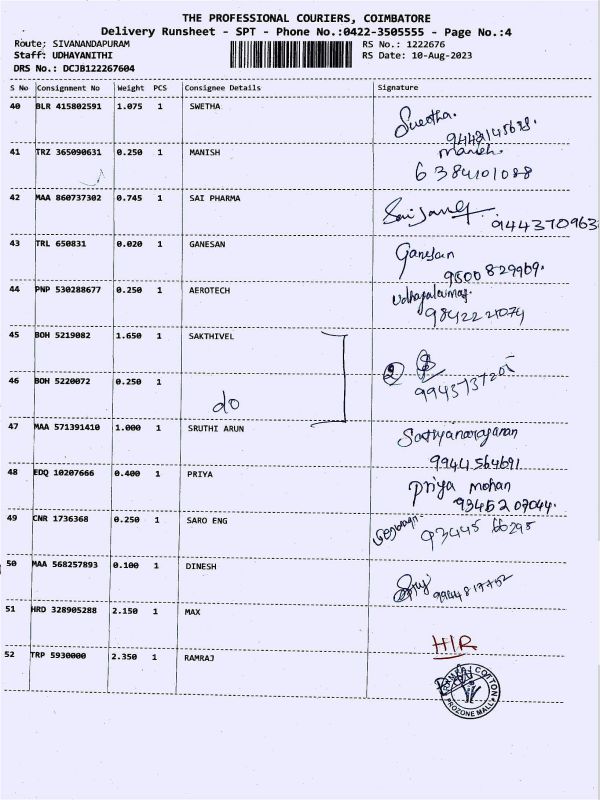 THE PROFESSIONAL COURIERS, COIMBATORE
Delivery Runsheet - SPT - Phone No.:0422-3505555 - Page No.:4
Route: SIVANANDAPURAM RS No.: 1222676
Staff: UDHAYANITHI RS Date: 10-Aug-2023
DRS No.: DCJB122267604
S No Consignment No Weight PCS Consignee Details Signature
40 BLR 415802591 1.075 1 SWETHA Swetha.
41 TRZ 365090631 0.250 1 MANISH Manish.
6384101088
42 MAA 860737302 0.745 1 SAI PHARMA
944370963
43 TRL 650831 0.020 1 GANESAN Ganesan
9500829969.
44 PNP 530288677 0.250 1 AEROTECH
9842221074
45 BOH 5219082 1.650 1 SAKTHIVEL
46 BOH 5220072 0.250 1 do 2
47 MAA 571391410 1.000 1 SRUTHI ARUN Sathyanarayanan
9944564691
48 EDQ 10207666 0.400 1 PRIYA Priya mohan
9345207044.
49 CNR 1736368 0.250 1 SARO ENG
50 MAA 568257893 0.100 1 DINESH
51 HRD 328905288 2.150 1 MAX H/R
52 TRP 5930000 2.350 1 RAMRAJ
COTTON
PROZONE MALL